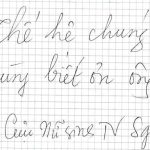 Thế hệ chúng
biết ơn
Cựu Nữ sinh TV Sg